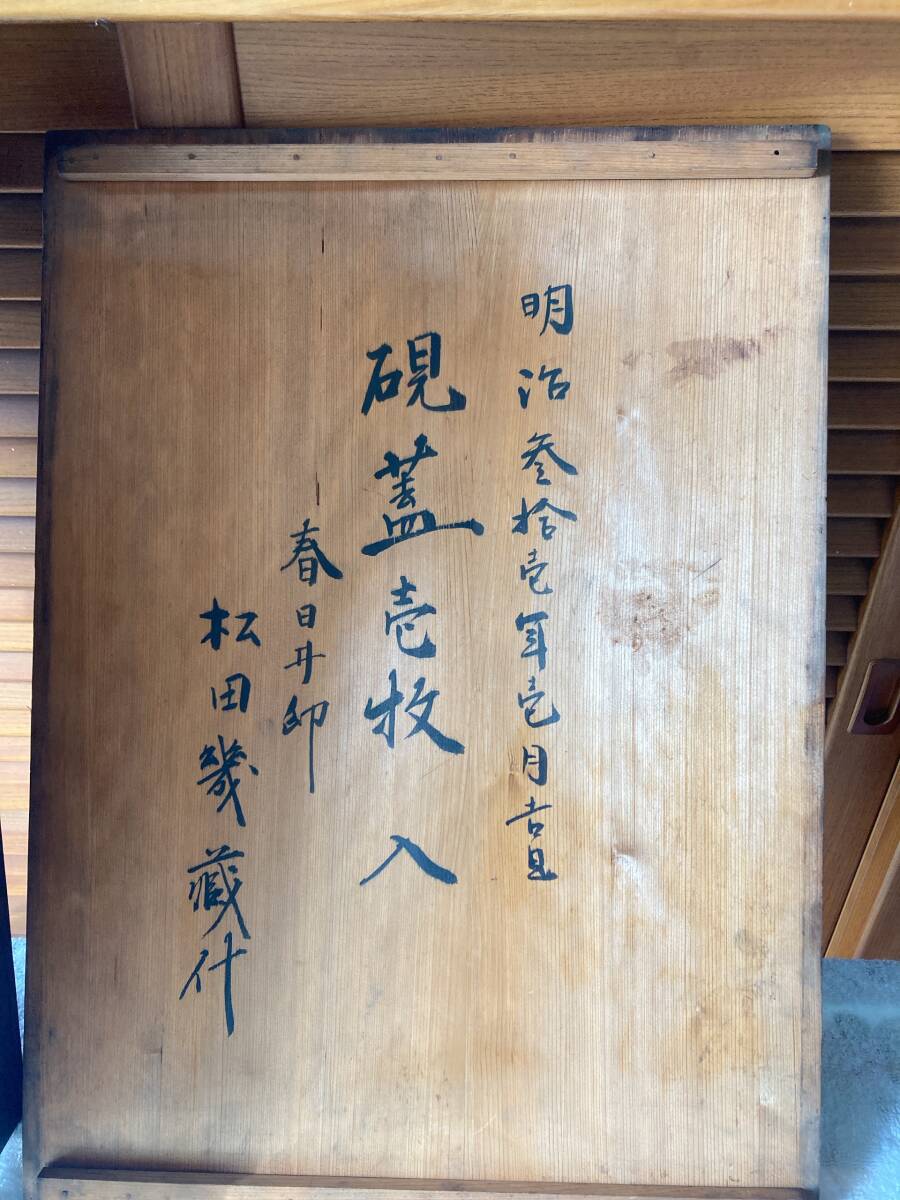 明治叁拾壱年壱月吉旦
硯蓋壱枚入
春日井印
松田幾蔵什